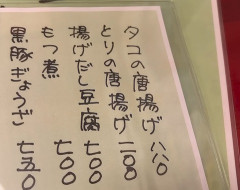 タコの唐揚げ 八八〇
とりの唐揚げ 一一〇〇
揚げだし豆腐 七〇〇
もつ煮 七〇〇
黒豚ぎょうざ 七五〇